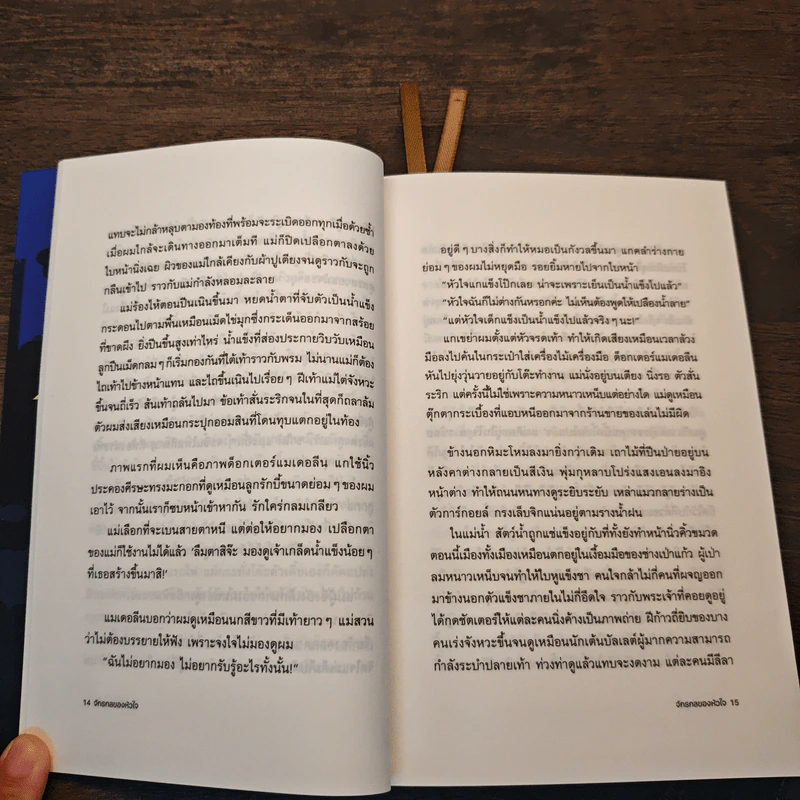 แทบจะไม่กล้าหลุบตามองท้องที่พร้อมจะระเบิดออกทุกเมื่อด้วยซ้ำ
เมื่อผมใกล้จะเดินทางออกมาเต็มที แม่ก็ปิดเปลือกตาลงด้วย
ใบหน้านิ่งเฉย ผิวของแม่ใกล้เคียงกับผ้าปูเตียงจนดูราวกับจะถูก
กลืนเข้าไป ราวกับแม่กำลังหลอมละลาย
แม่ร้องไห้ตอนปีนเนินขึ้นมา หยดน้ำตาที่จับตัวเป็นน้ำแข็ง
กระดอนไปตามพื้นเหมือนเม็ดไข่มุกซึ่งกระเด็นออกมาจากสร้อย
ที่ขาดผึง ยิ่งปีนขึ้นสูงเท่าไหร่ น้ำแข็งที่ส่องประกายวิบวับเหมือน
ลูกปืนเม็ดกลมๆ ก็เริ่มกองกันที่ใต้เท้าราวกับพรม ไม่นานแม่ก็ต้อง
ไถเท้าไปข้างหน้าแทน และไถขึ้นเนินไปเรื่อยๆ ฝีเท้าแม่ไต่จังหวะ
ขึ้นจนถี่เร็ว ส้นเท้าถลันไปมา ข้อเท้าสั่นระริกจนในที่สุดก็ถลาล้ม
ตัวผมส่งเสียงเหมือนกระปุกออมสินที่โดนทุบแตกอยู่ในท้อง
ภาพแรกที่ผมเห็นคือภาพด็อกเตอร์แมเดอลีน แกใช้นิ้ว
ประคองศีรษะทรงมะกอกที่ดูเหมือนลูกรักบี้ขนาดย่อมๆ ของผม
เอาไว้ จากนั้นเราก็ซบหน้าเข้าหากัน รักใคร่กลมเกลียว
แม่เลือกที่จะเบนสายตาหนี แต่ต่อให้อยากมอง เปลือกตา
ของแม่ก็ใช้งานไม่ได้แล้ว ‘ลืมตาสิจ๊ะ มองดูเจ้าเกล็ดน้ำแข็งน้อยๆ
ที่เธอสร้างขึ้นมาสิ!’
แมเดอลีนบอกว่าผมดูเหมือนนกสีขาวที่มีเท้ายาวๆ แม่สวน
ว่าไม่ต้องบรรยายให้ฟัง เพราะจงใจไม่มองดูผม
“ฉันไม่อยากมอง ไม่อยากรับรู้อะไรทั้งนั้น!”
14 จักรกลของหัวใจ
อยู่ดีๆ บางสิ่งก็ทำให้หมอเป็นกังวลขึ้นมา แกคลำร่างกาย
ย่อมๆ ของผมไม่หยุดมือ รอยยิ้มหายไปจากใบหน้า
“หัวใจแกแข็งโป๊กเลย น่าจะเพราะเย็นเป็นน้ำแข็งไปแล้ว”
“หัวใจฉันก็ไม่ต่างกันหรอกค่ะ ไม่เห็นต้องพูดให้เปลืองน้ำลาย”
“แต่หัวใจเด็กแข็งเป็นน้ำแข็งไปแล้วจริงๆ นะ!”
แกเขย่าผมตั้งแต่หัวจรดเท้า ทำให้เกิดเสียงเหมือนเวลาล้วง
มือลงไปค้นในกระเป๋าใส่เครื่องไม้เครื่องมือ ด็อกเตอร์แมเดอลีน
หันไปยุ่งวุ่นวายอยู่กับโต๊ะทำงาน แม่นั่งอยู่บนเตียง นิ่งรอ ตัวสั่น
ระริก แต่ครั้งนี้ไม่ใช่เพราะความหนาวเหน็บแต่อย่างใด แม่ดูเหมือน
ตุ๊กตากระเบื้องที่แอบหนีออกมาจากร้านขายของเล่นไม่มีผิด
ข้างนอกหิมะโหมลงมายิ่งกว่าเดิม เถาไม้ที่ปีนป่ายอยู่บน
หลังคาต่างกลายเป็นสีเงิน พุ่มกุหลาบโปร่งแสงเอนลงมาอิง
หน้าต่าง ทำให้ถนนหนทางดูระยิบระยับ เหล่าแมวกลายร่างเป็น
ตัวการ์กอยล์ กรงเล็บจิกแน่นอยู่ตามรางน้ำฝน
ในแม่น้ำ สัตว์น้ำถูกแช่แข็งอยู่กับที่ทั้งยังทำหน้านิ่วคิ้วขมวด
ตอนนี้เมืองทั้งเมืองเหมือนตกอยู่ในเงื้อมมือของช่างเป่าแก้ว ผู้เป่า
ลมหนาวเหน็บจนทำให้ใบหูแข็งชา คนใจกล้าไม่กี่คนที่ผจญออก
มาข้างนอกตัวแข็งชาภายในไม่กี่อึดใจ ราวกับพระเจ้าที่คอยดูอยู่
ได้กดชัตเตอร์ให้แต่ละคนนิ่งค้างเป็นภาพถ่าย ฝีก้าวถี่ยิบของบาง
คนเร่งจังหวะขึ้นจนดูเหมือนนักเต้นบัลเลต์ผู้มากความสามารถ
กำลังระบำปลายเท้า ท่วงท่าดูแล้วแทบจะงดงาม แต่ละคนมีลีลา
จักรกลของหัวใจ 15